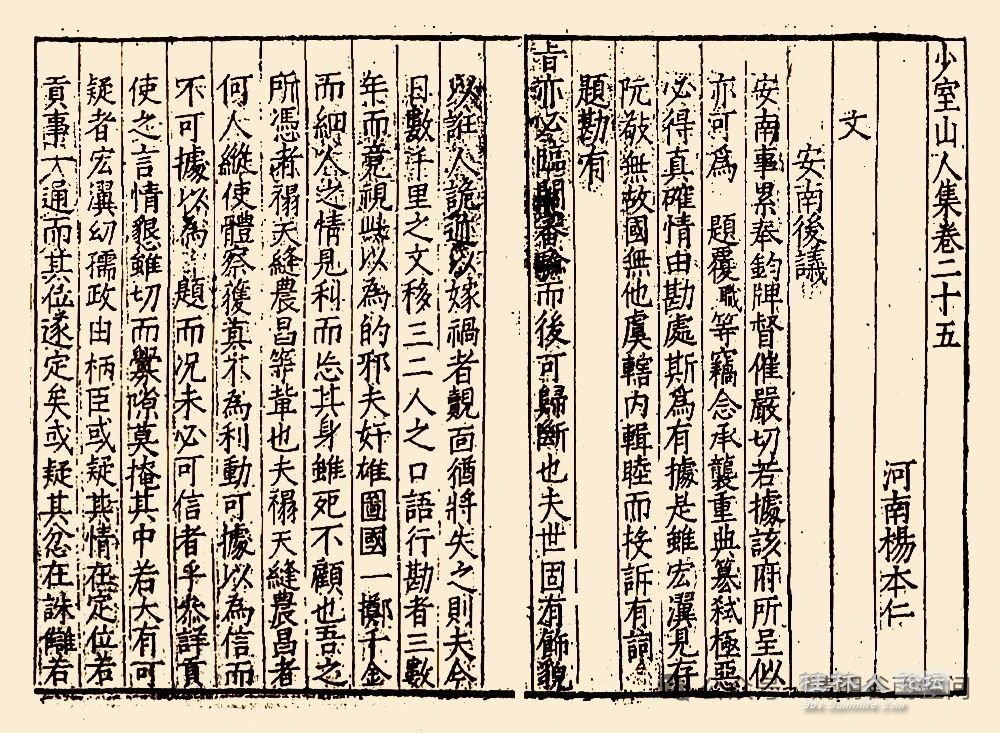 少室山人集卷二十五
河南楊本仁
文
安南後議
安南事累奉鈞牌督催嚴切若據該府所呈似
亦可為 題覆職等竊念承襲重典篡弒極惡
必得真確情由勘處斯為有據是雖宏瀷見存
阮敬無故國無他虞轄内輯睦而投訴有詞
題勘有
旨亦必臨關審驗而後可歸斷也夫世固有飾貌
以誑人詭迹以嫁禍者覿面猶將失之則夫今
日數千里之文移三二人之口語行勘者三數
年而竟視此以為的邪夫奸雄圖國一擲千金
而細人之情見利而忘其身雖死不顧也吾之
所憑者禤天縫農昌等輩也夫禤天縫農昌者
何人縱使體察獲真不為利動可據以為信而
不可據以為題而況未必可信者乎參詳頁
使之言情懇雖切而釁隙莫掩其中若大有可
疑者宏瀷幼孺政由柄臣或疑其情在定位若
貢事大通而其位遂定矣或疑其忿在誅讎若
桂林人论坛
bbs.Guilinlife.Com